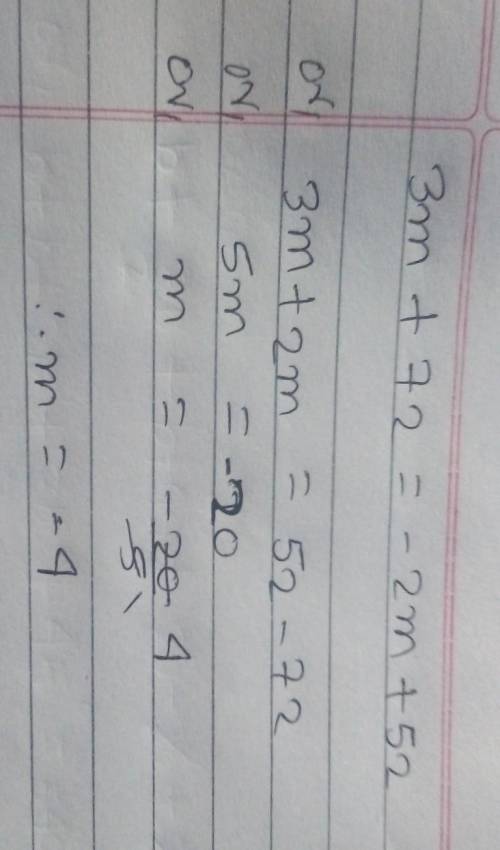 3m + 72 = -2m + 52
or, 3m + 2m = 52 - 72
or, 5m = -20
or, m = -20/5 4
∴ m = -4